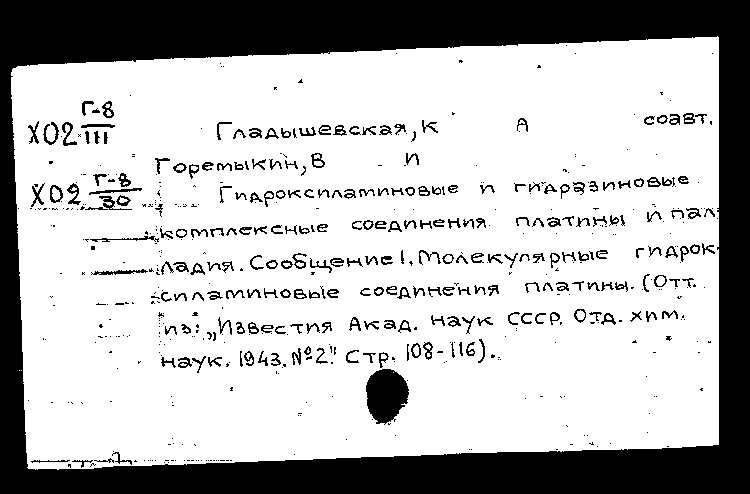 Г-8
Х02 III
Гладышевская, К А соавт.
Горемыкин, В И
Х02 Г-8
30
Гидроксиламиновые и гидразиновые
комплексные соединения платины и пал-
ладия. Сообщение I. Молекулярные гидрок-
силаминовые соединения платины. (Отт.
из: „Известия Акад. наук СССР. Отд. хим.
наук. 1943. №2." Стр. 108-116).